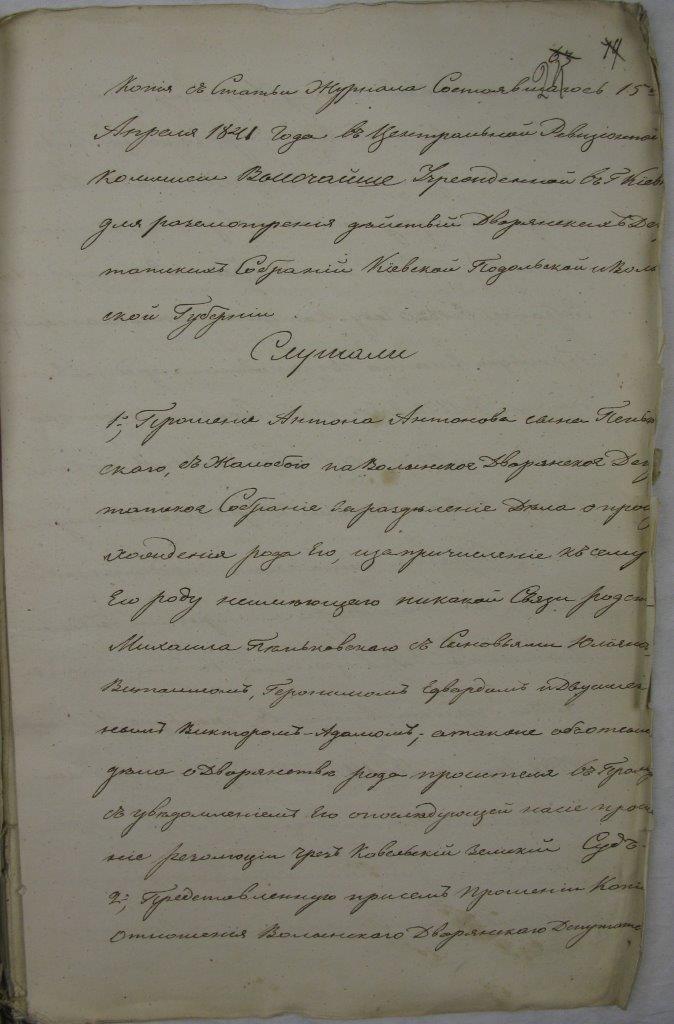 74
Копія съ Статьи Журнала Состоявшагось 15го
Апреля 1841 года въ Центральной Ревизіонной
Коммисіи Высочайше Учрежденной въ Г Кіевѣ
для разсмотренія дѣйствій Дворянскихъ Де,
татскихъ Собраній Кіевской Подольской и Волы
ской Губерніи.
Слушали
1е, Прошеніе Антона Антонова сына Пеньк
скаго, съ Жалобою на Волынское Дворянское Деп
татское Собраніе за раздѣленіе Дѣла о про
хожденія рода Его, и за причисленіе къ сему
Его роду неимѣющаго никакой Связи родст
Михаила Пѣньковскаго съ Сыновьями Юльяно
Виташомъ, Геронимомъ Едвардомъ и Двуимен
нымъ Викторомъ-Адамомъ,- а также объ отсыл
дѣла о Дворянствѣ рода просителя въ Герольд
съ увѣдомленіемъ Его о послѣдующей на сіе проше
ніе резолюціи чрезъ Ковельскій Земскій Судъ-
2е, Представленную при семъ Прошеніи Копію
Отношенія Волынскаго Дворянскаго Депутатс